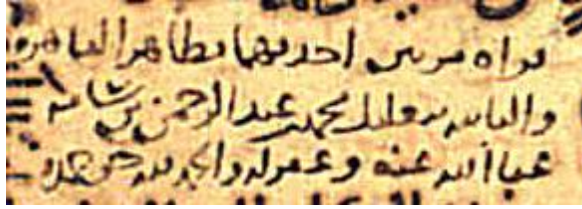 قراه مرتين احديهما بظاهر القاهرة
والثانيه بدمشق محمد بن عبد الرحمن بن شامه
عفا الله عنه وغفر له والحمد لله حق حمده